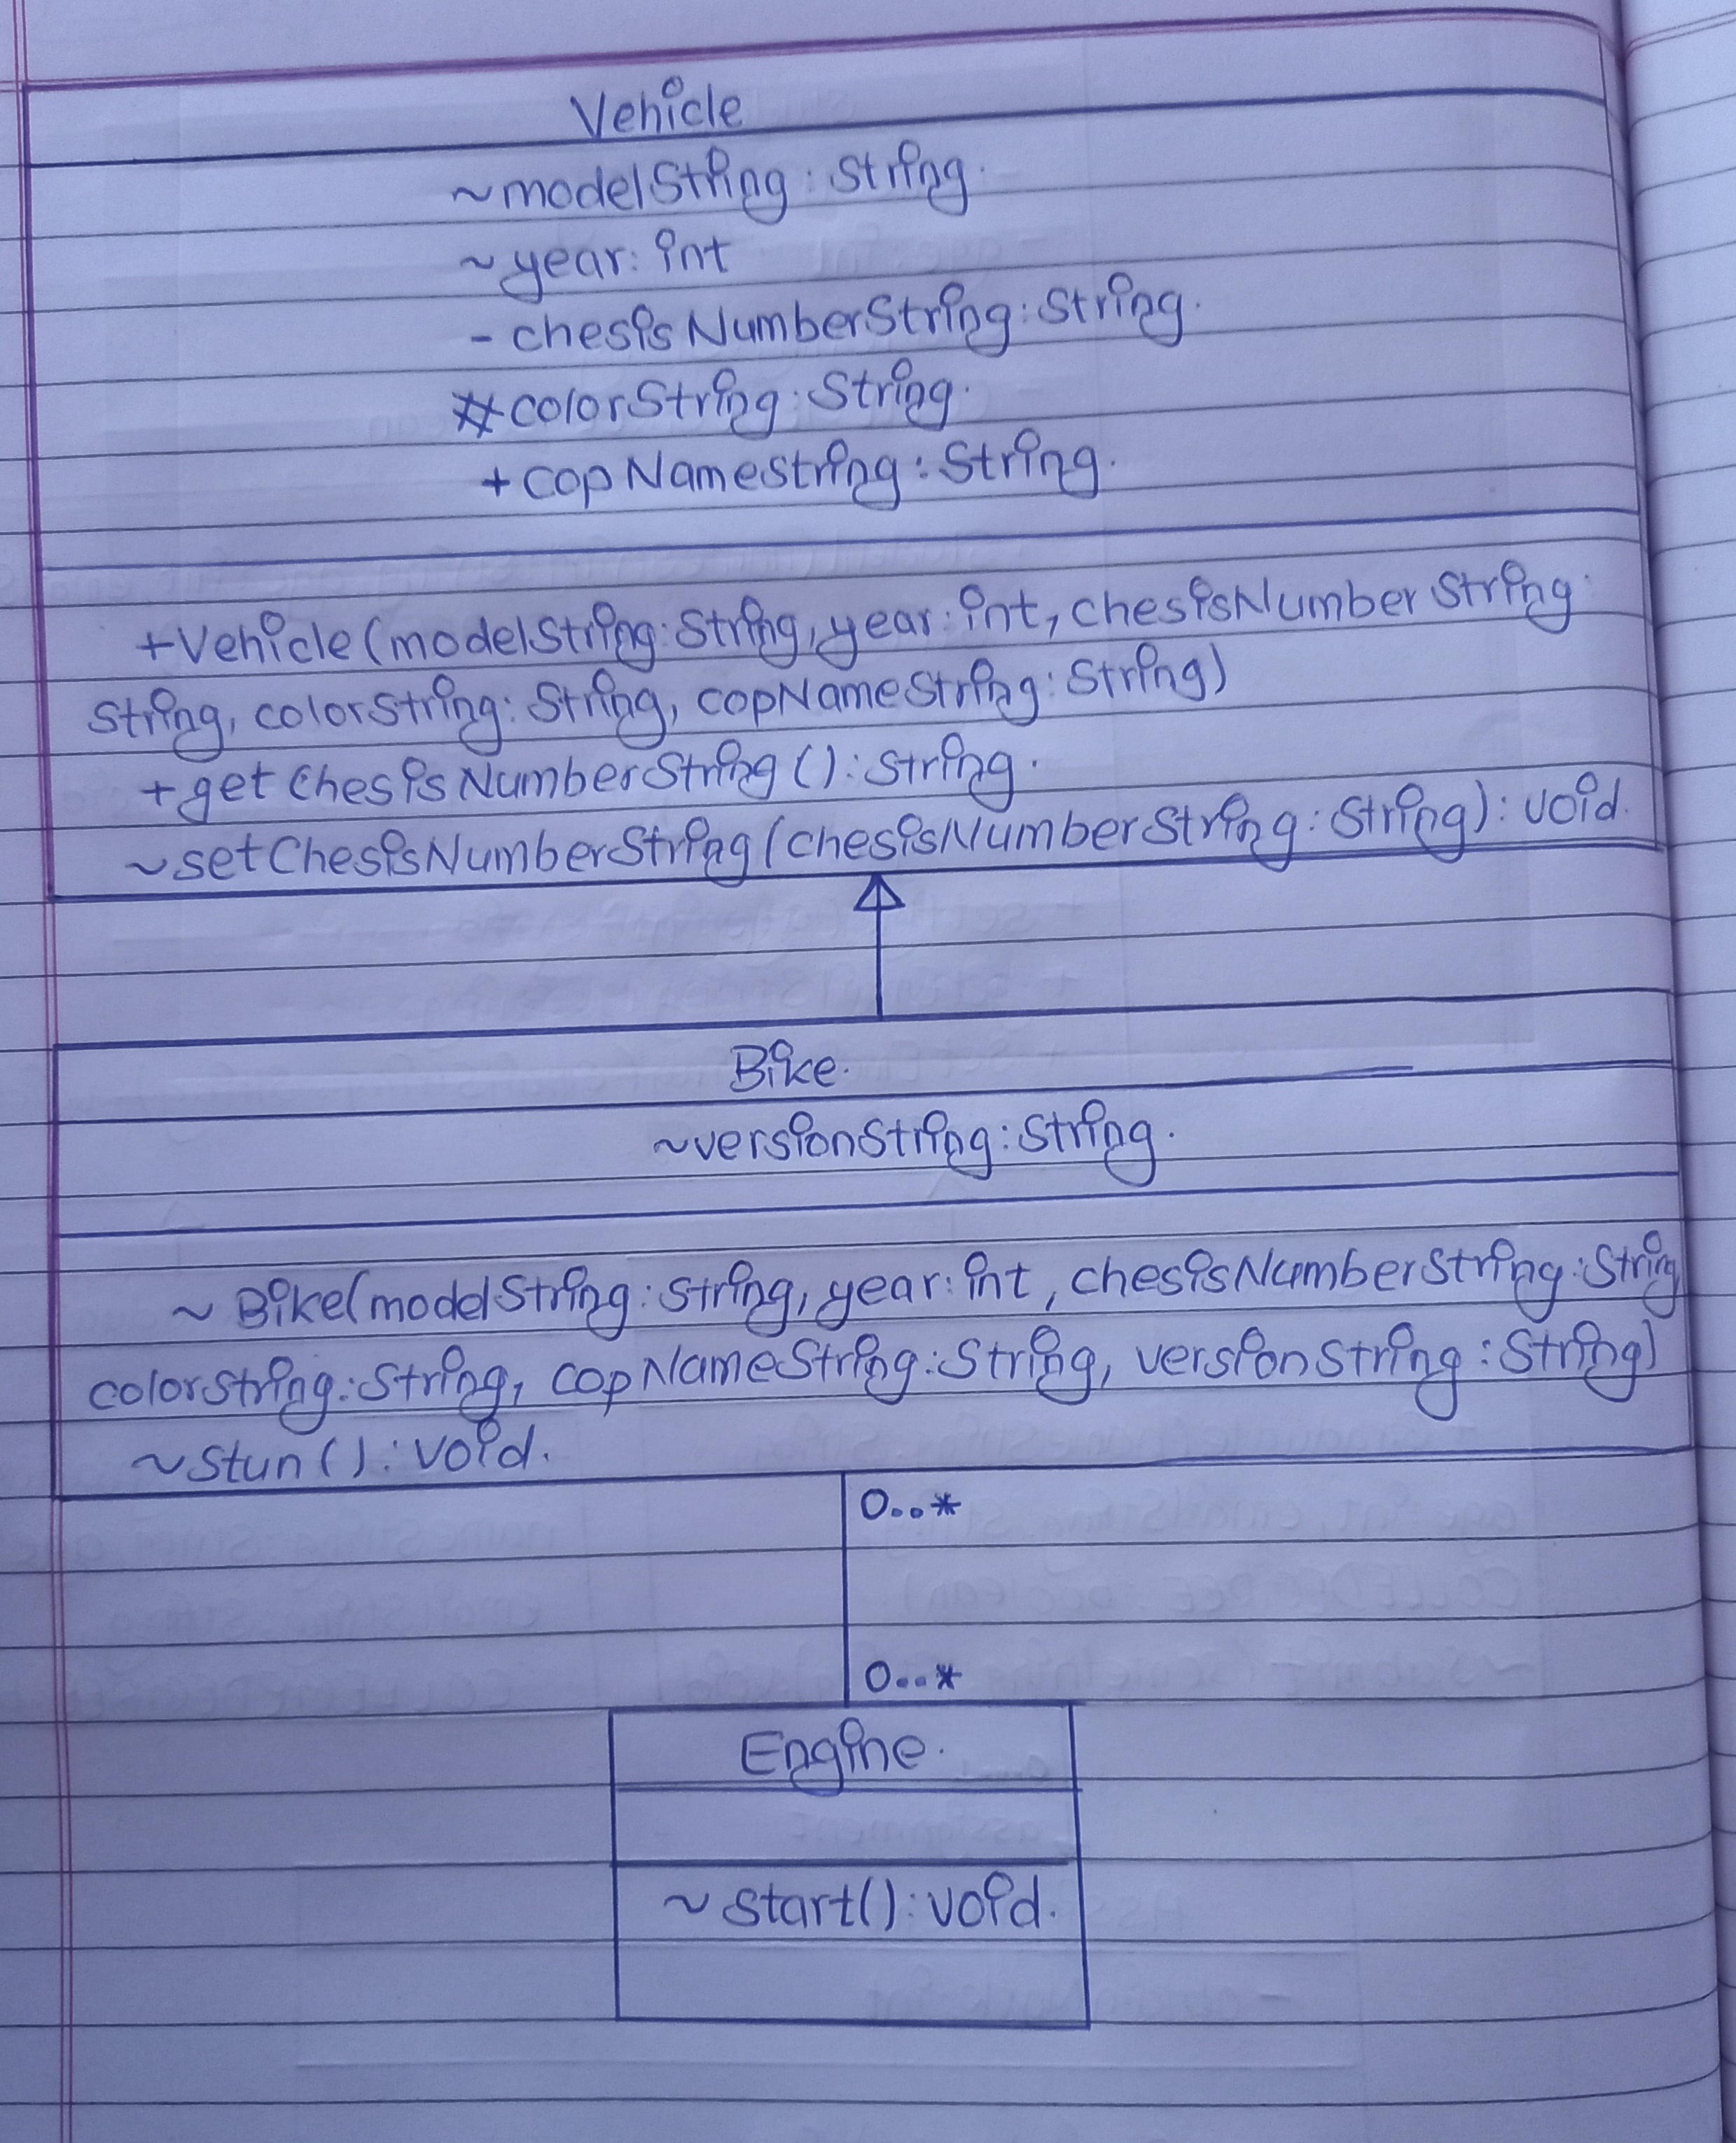 Vehicle
~modelString: String.
~year: int
- chesisNumberString: String.
#colorString: String.
+copNameString: String.
+Vehicle(modelString: String, year: int, chesisNumberString:
String, colorString: String, copNameString: String)
+getChesisNumberString(): String.
~setChesisNumberString(chesisNumberString: String): void.
Bike.
~versionString: String.
~ Bike(modelString: String, year: int, chesisNumberString: String
colorString: String, copNameString: String, versionString: String)
~stun(): void.
0..*
0..*
Engine.
~ start(): void.